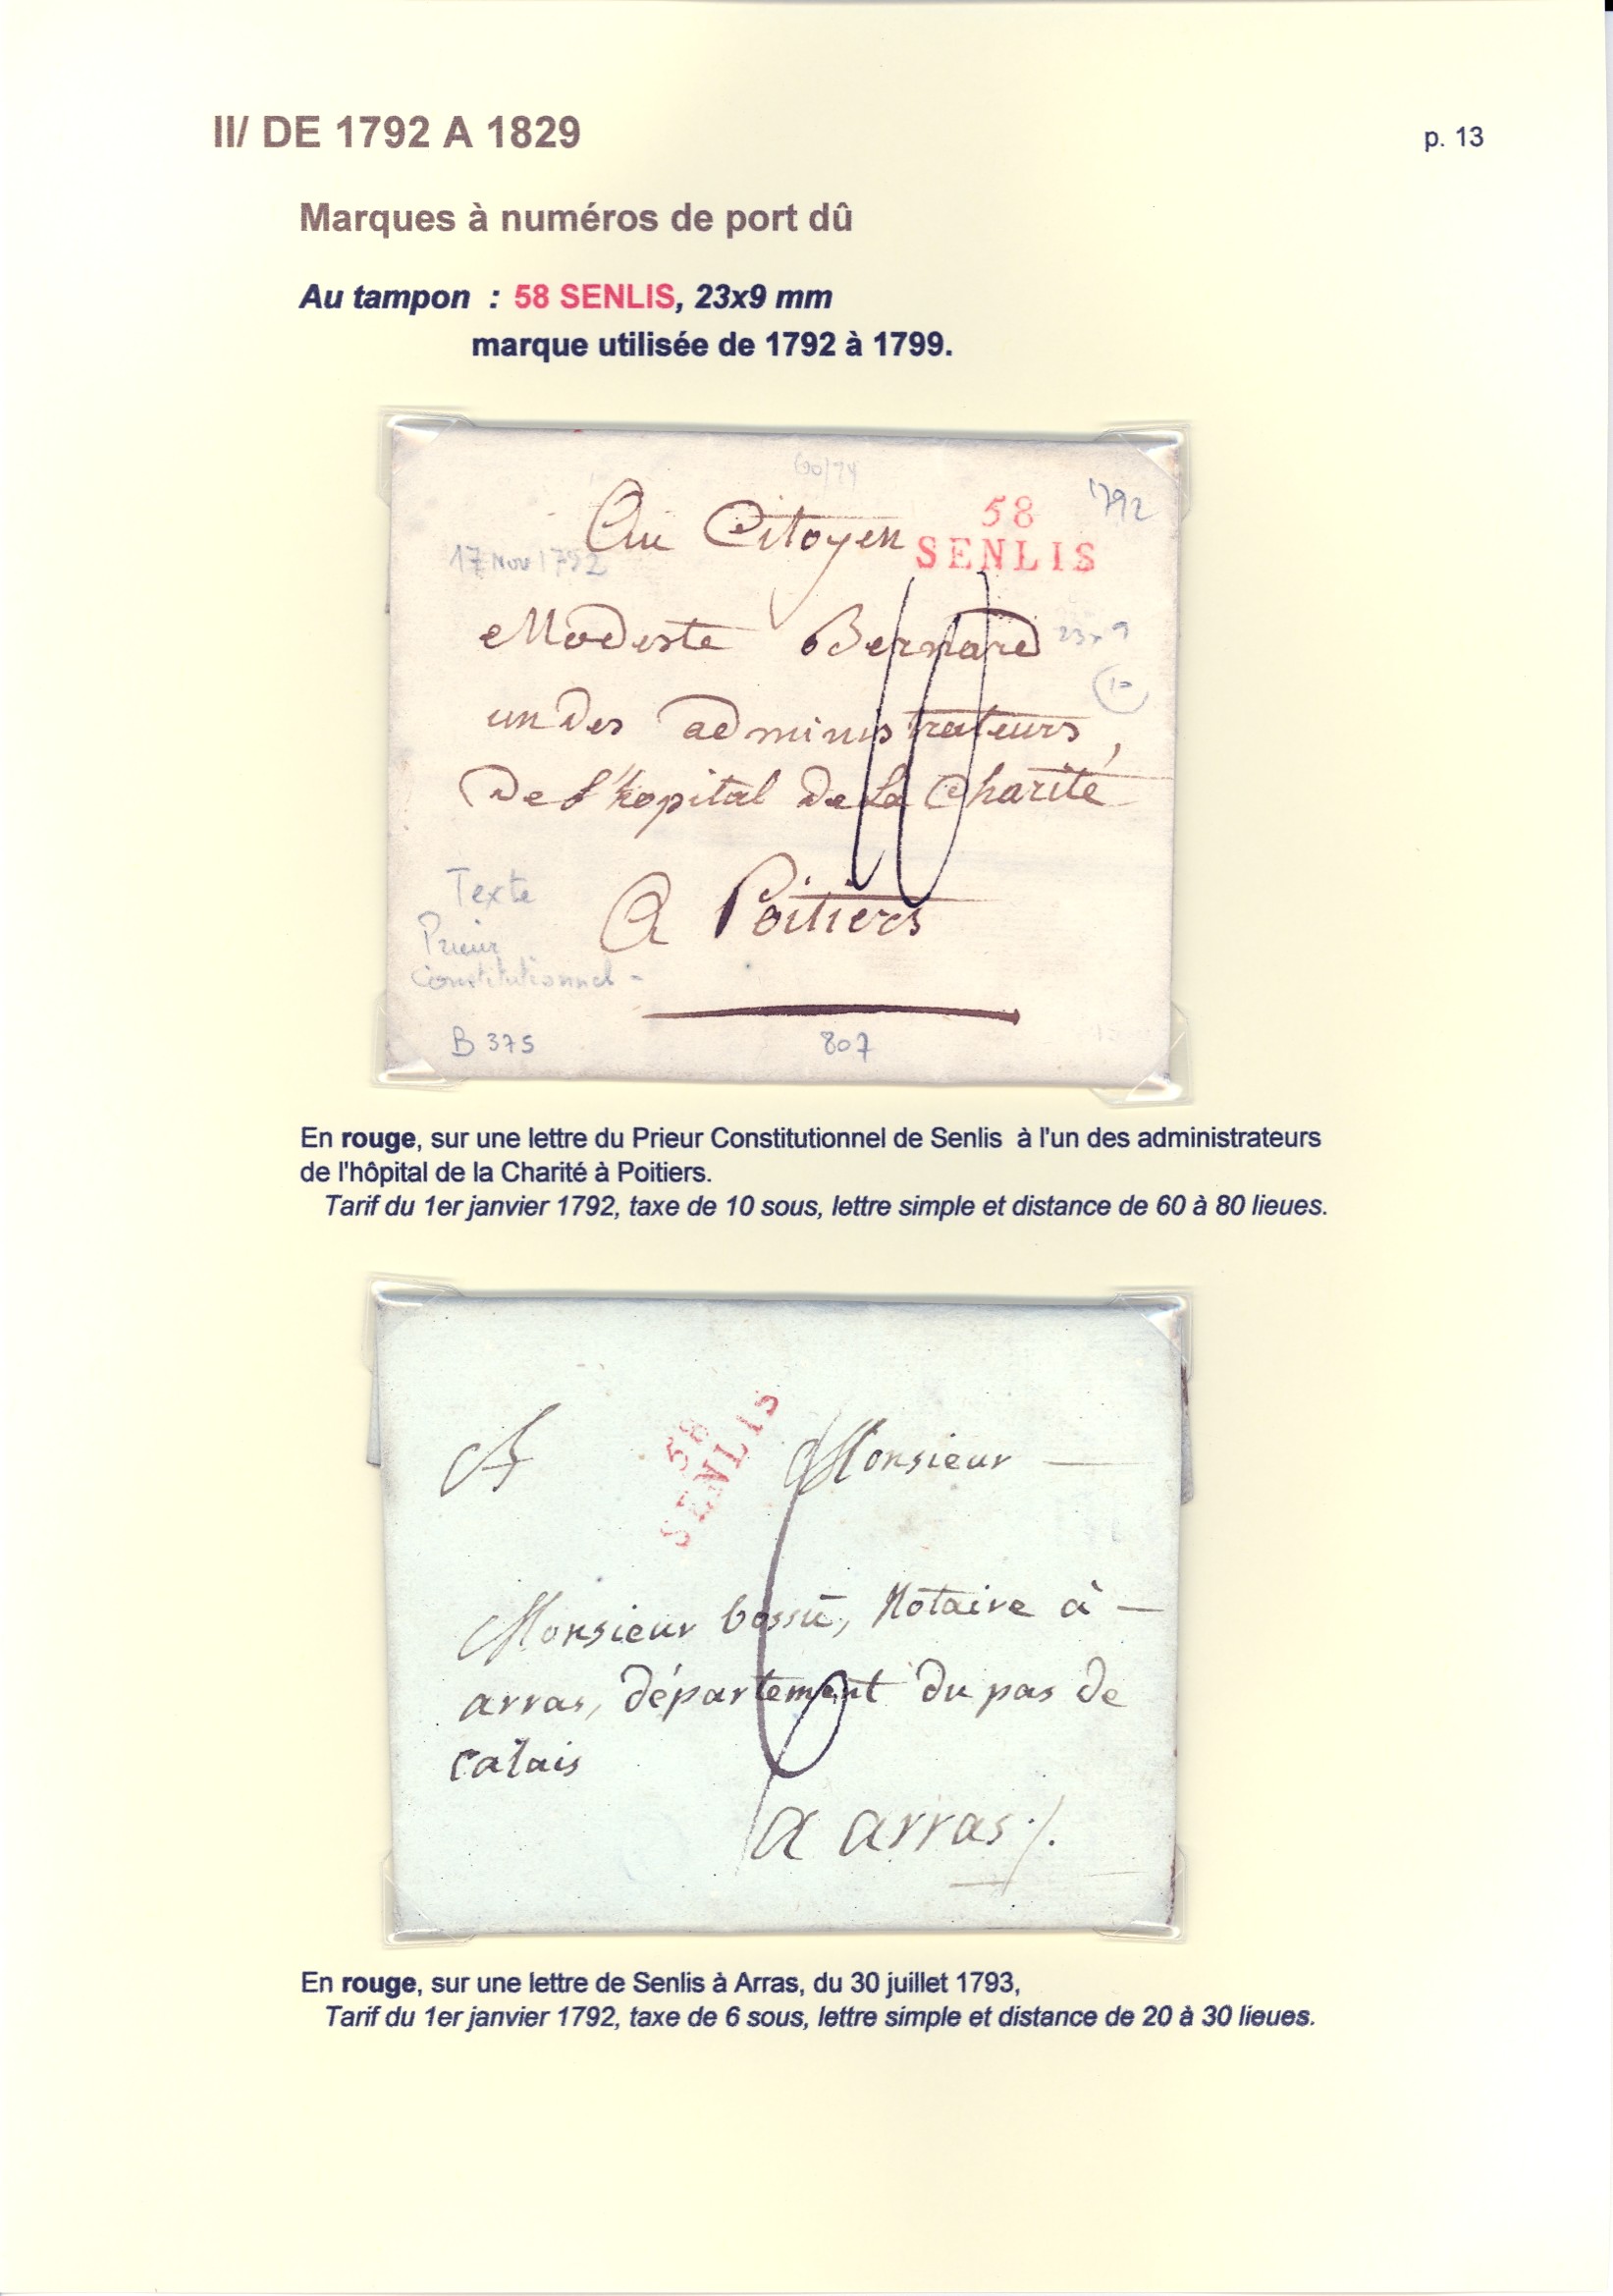 II/ DE 1792 A 1829
p. 13
Marques à numéros de port dû
Au tampon : 58 SENLIS, 23x9 mm
marque utilisée de 1792 à 1799.
60/74
1792
58
SENLIS
Au Citoyen
17 Nov 1792
Modeste Bernard
23x9
10
un des administrateurs,
De l'hopital de La Charité
10
Texte
A Poitiers
Prieur
Constitutionnel -
B 375
807
En rouge, sur une lettre du Prieur Constitutionnel de Senlis à l'un des administrateurs
de l'hôpital de la Charité à Poitiers.
Tarif du 1er janvier 1792, taxe de 10 sous, lettre simple et distance de 60 à 80 lieues.
58
SENLIS
A Monsieur
Monsieur bossu, Notaire à
arras, département du pas de
calais
6
a arras ./.
En rouge, sur une lettre de Senlis à Arras, du 30 juillet 1793,
Tarif du 1er janvier 1792, taxe de 6 sous, lettre simple et distance de 20 à 30 lieues.